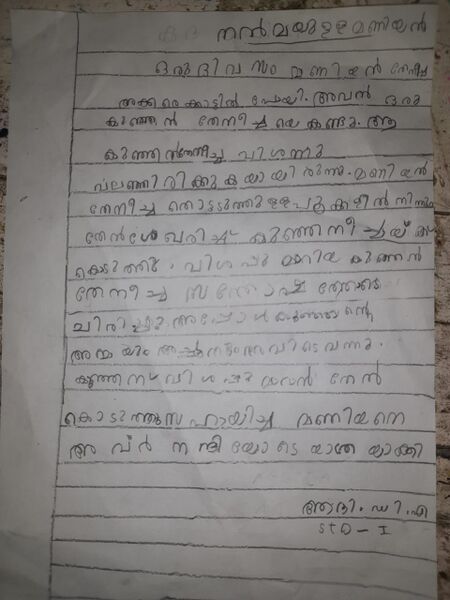 കഥ നൻമയുള്ള മണിയൻ
ഒരു ദിവസം മണിയൻ തേനീച്ച
അക്കരെക്കാട്ടിൽ പോയി. അവൻ ഒരു
കുഞ്ഞൻ തേനീച്ച യെ കണ്ടു. ആ
കുഞ്ഞൻതേനീച്ച വിശന്നു
വലഞ്ഞിരിക്കുകയായിരുന്നു. മണിയൻ
തേനീച്ച തൊട്ടടുത്തുള്ള പൂക്കളിൽ നിന്നും
തേൻ ശേഖരിച്ച് കുഞ്ഞൻതേനീച്ചയ്ക്ക്
കൊടുത്തു. വിശപ്പു മാറിയ കുഞ്ഞൻ
തേനീച്ച സന്തോഷത്തോടെ
ചിരിച്ചു. അപ്പോൾ കുഞ്ഞന്റെ
അമ്മയും അച്ഛനും അവിടെ വന്നു.
കുഞ്ഞന് വിശപ്പു മാറാൻ തേൻ
കൊടുത്തു സഹായിച്ച മണിയനെ
അവർ നന്ദിയോടെ യാത്രയാക്കി
ആദി. ഡി. എ
STD - I